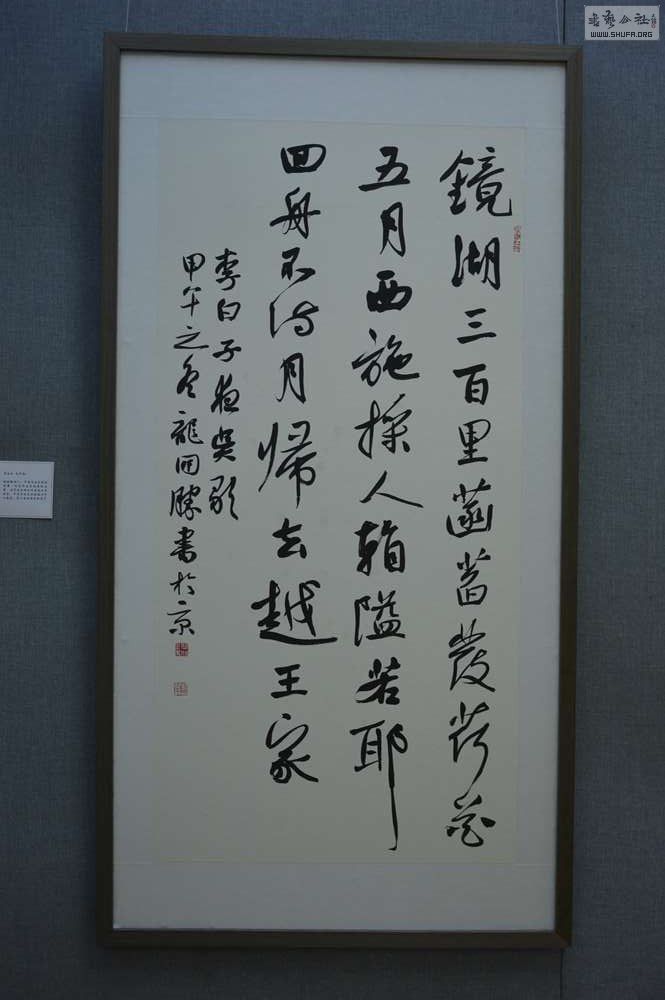 書藝公社
WWW.SHUFA.ORG
鏡湖三百里菡萏發荷花
五月西施採人看隘若耶
回舟不待月帰去越王家
李白子夜吳歌
甲午之冬龍開勝書於京